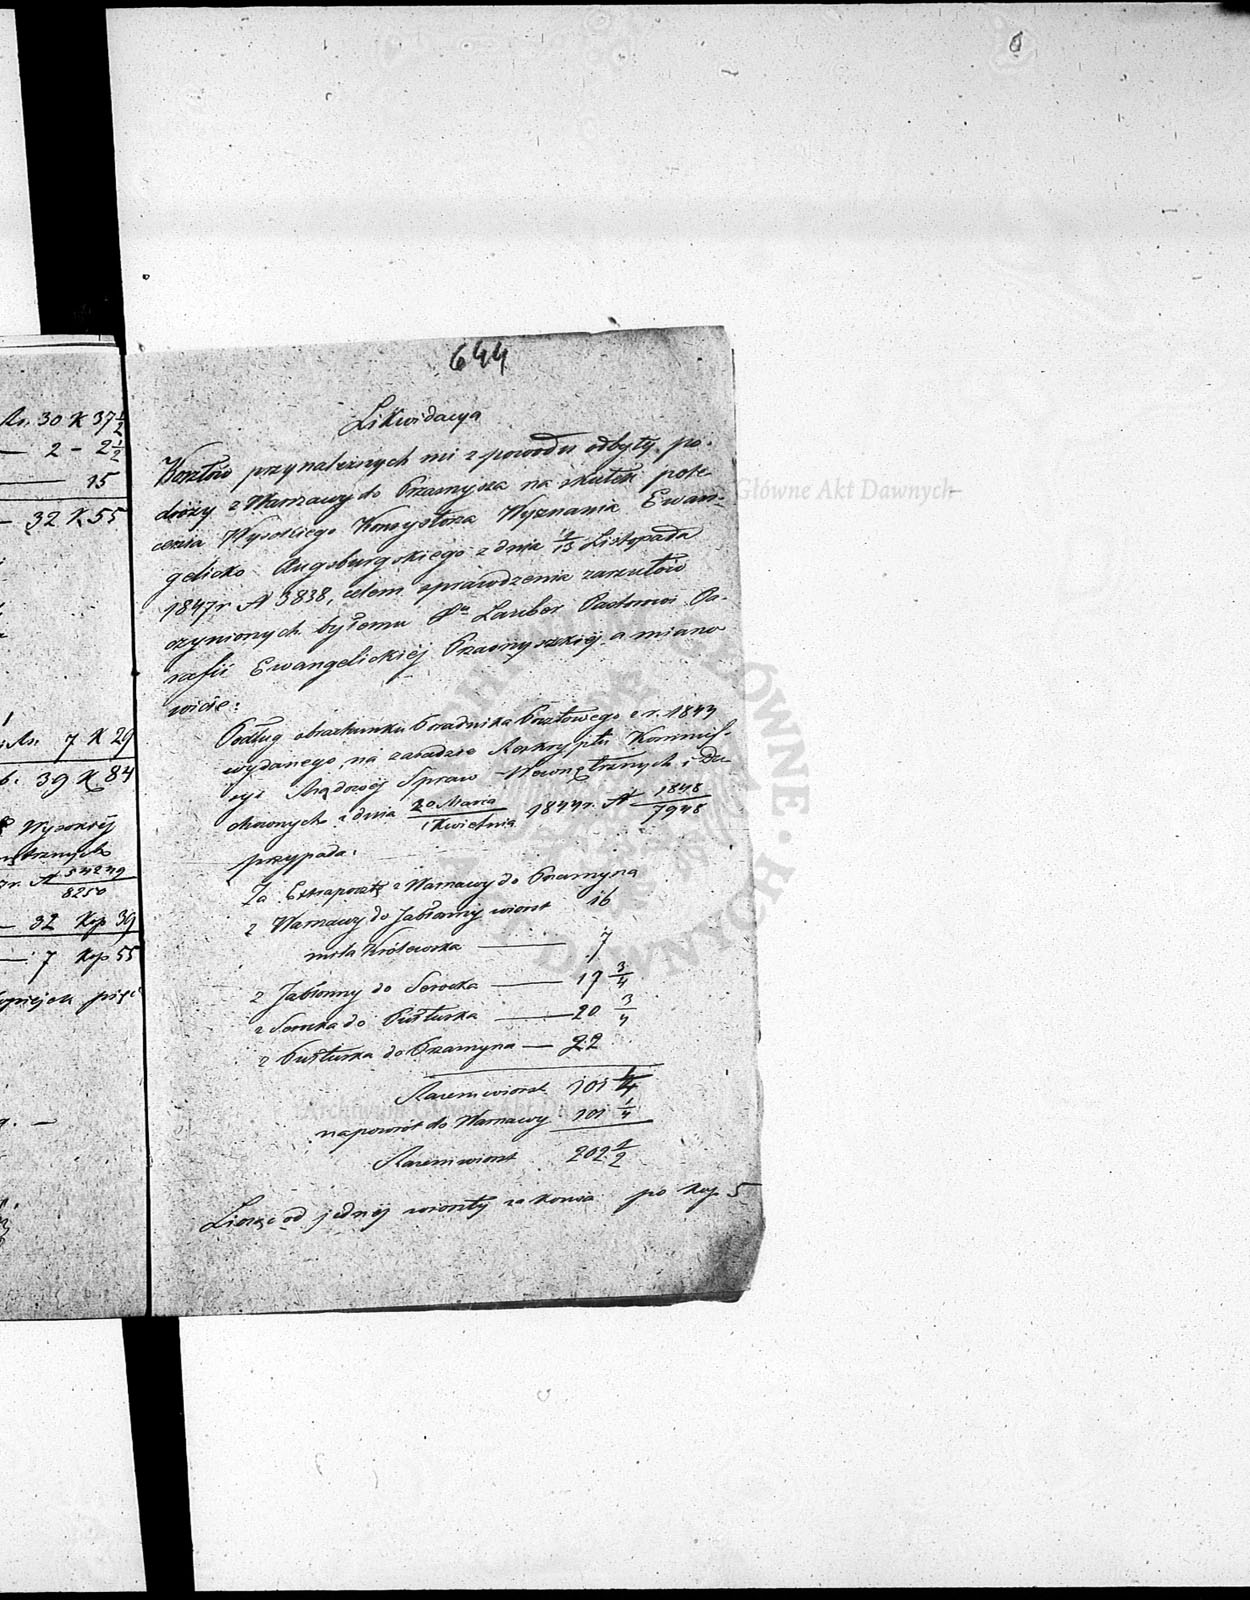 Rs. 30 K 37½
— 2 - 2½
— 15
— 32 K 55
Rs. 7 K 29
39 K 84
Wysokiéj
54249
8250
— 32 Kop 39
— 7 Kop 55
644
Likwidacya
Kosztów przynależnych mi z powodu odbytéj po-
dróży z Warszawy do Przasnysza na skutek pole-
cenia Wysokiego Konsystorza Wyznania Ewan-
gelicko Augsburgskiego z dnia 1/13 Listopada
1847r N 3838, celem sprawdzenia zarzutów
czynionych byłemu Lauber Pastorowi Pa-
rafii Ewangelickiéj Przasnyszkiéj a miano
wicie:
Podług obrachunku Poradnika Pocztowego z r. 1844
wydanego na zasadzie Reskryptu Kommis-
syi Rządowéj Spraw Wewnętrznych i Du-
chownych z dnia 20 Marca/1 Kwietnia 1844r. N 1848/7948
przypada:
Za Extrapocztę z Warszawy do Przasnysza
z Warszawy do Jabłonny wiorst 16
mila Królewska — 7
z Jabłonny do Serocka — 19¾
z Serocka do Pułtuska — 20¾
z Pułtuska do Przasnysza —
Razem wiorst 101 ¼
napowrót do Warszawy 101 ¼
Razem wiorst 202 ½
Licząc od jednéj wiorsty za konia po kop 5
Archiwum Główne Akt Dawnych
ARCHIWUM GŁÓWNE AKT DAWNYCH